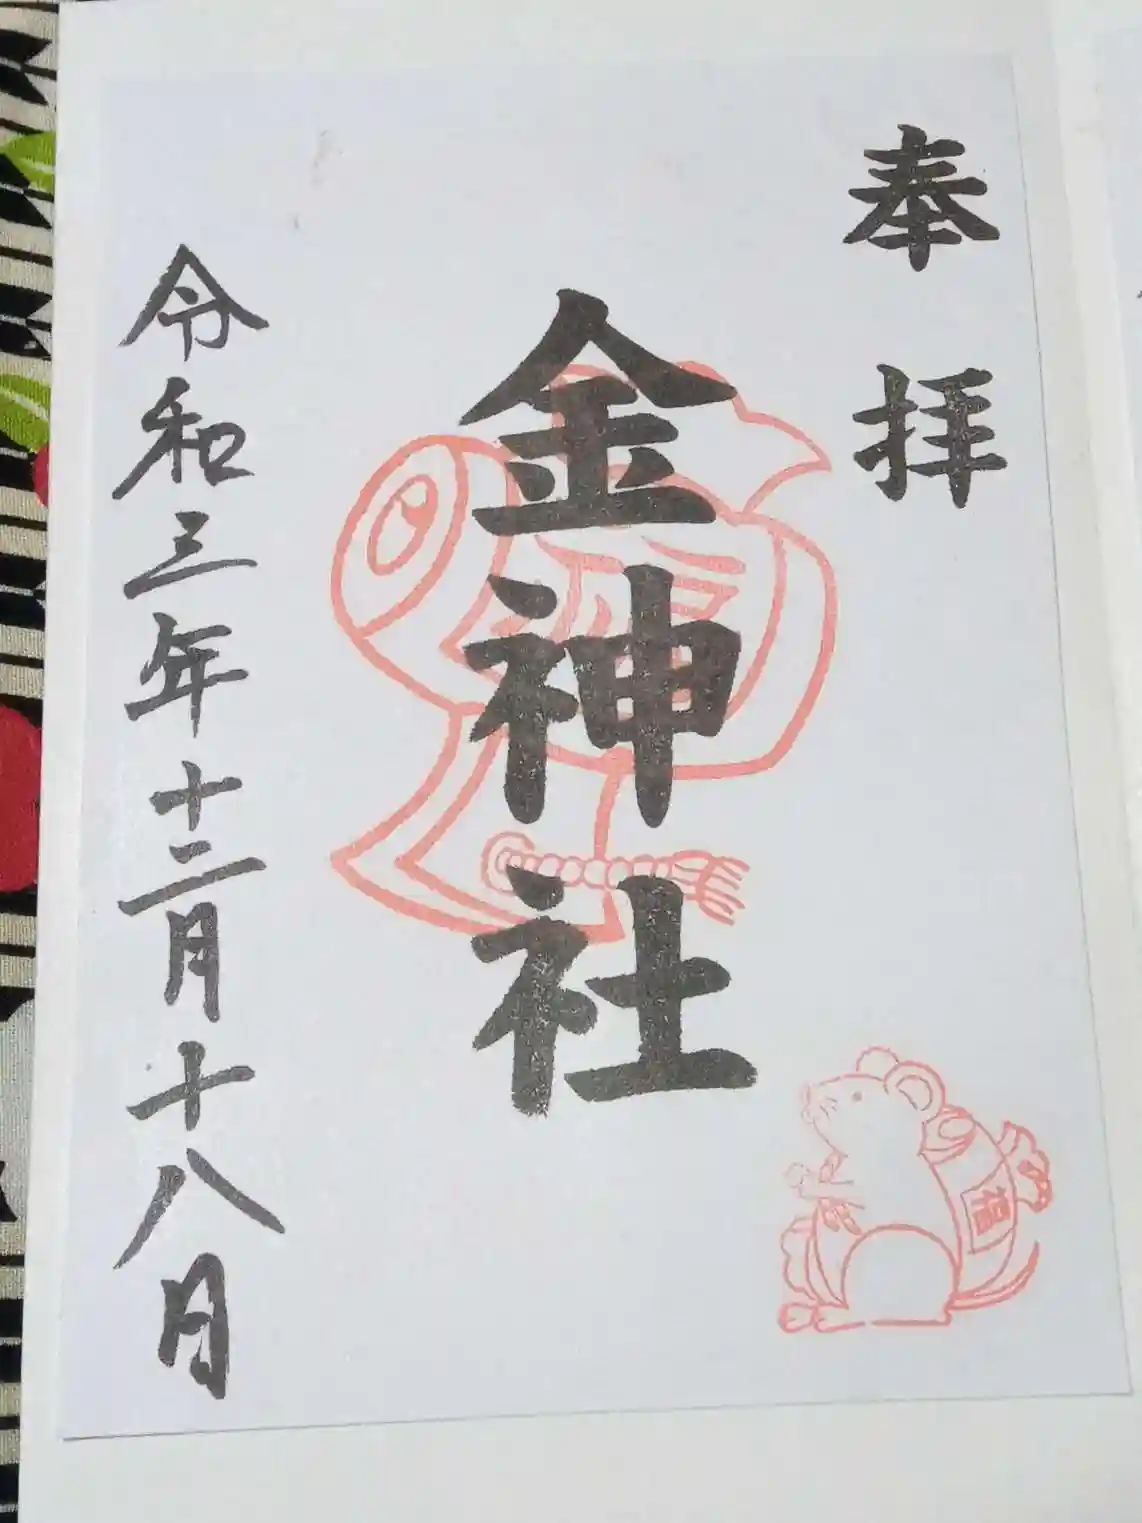 奉拝
金神社
令和三年十二月十八日
福